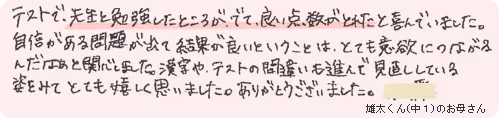 テストで、先生と勉強したところが、でて、良い点数がとれたと喜んでいました。
自信がある問題が出て結果が良いということは、とても意欲につながる
んだなぁと関心しました。漢字や、テストの間違いも進んで見直ししている
姿をみてとても嬉しく思いました。ありがとうございました。
雄太くん(中1)のお母さん